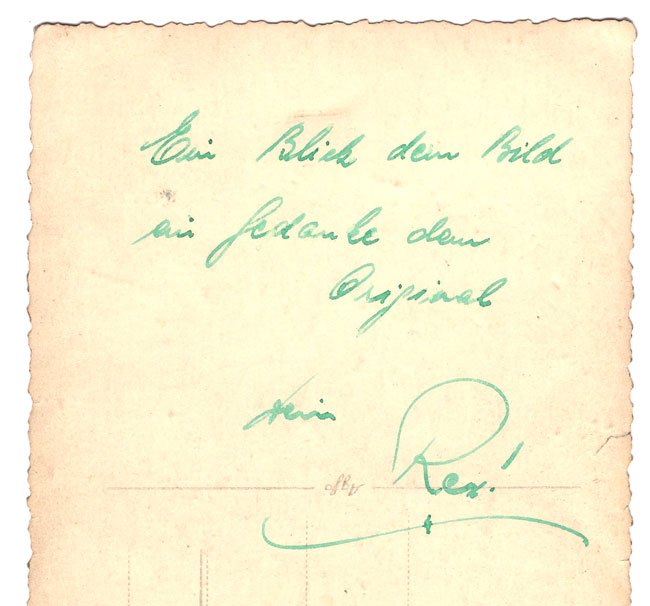 Ein Blick dem Bild
ein Gedanke dem
Original
Dein Rex!
Agfa